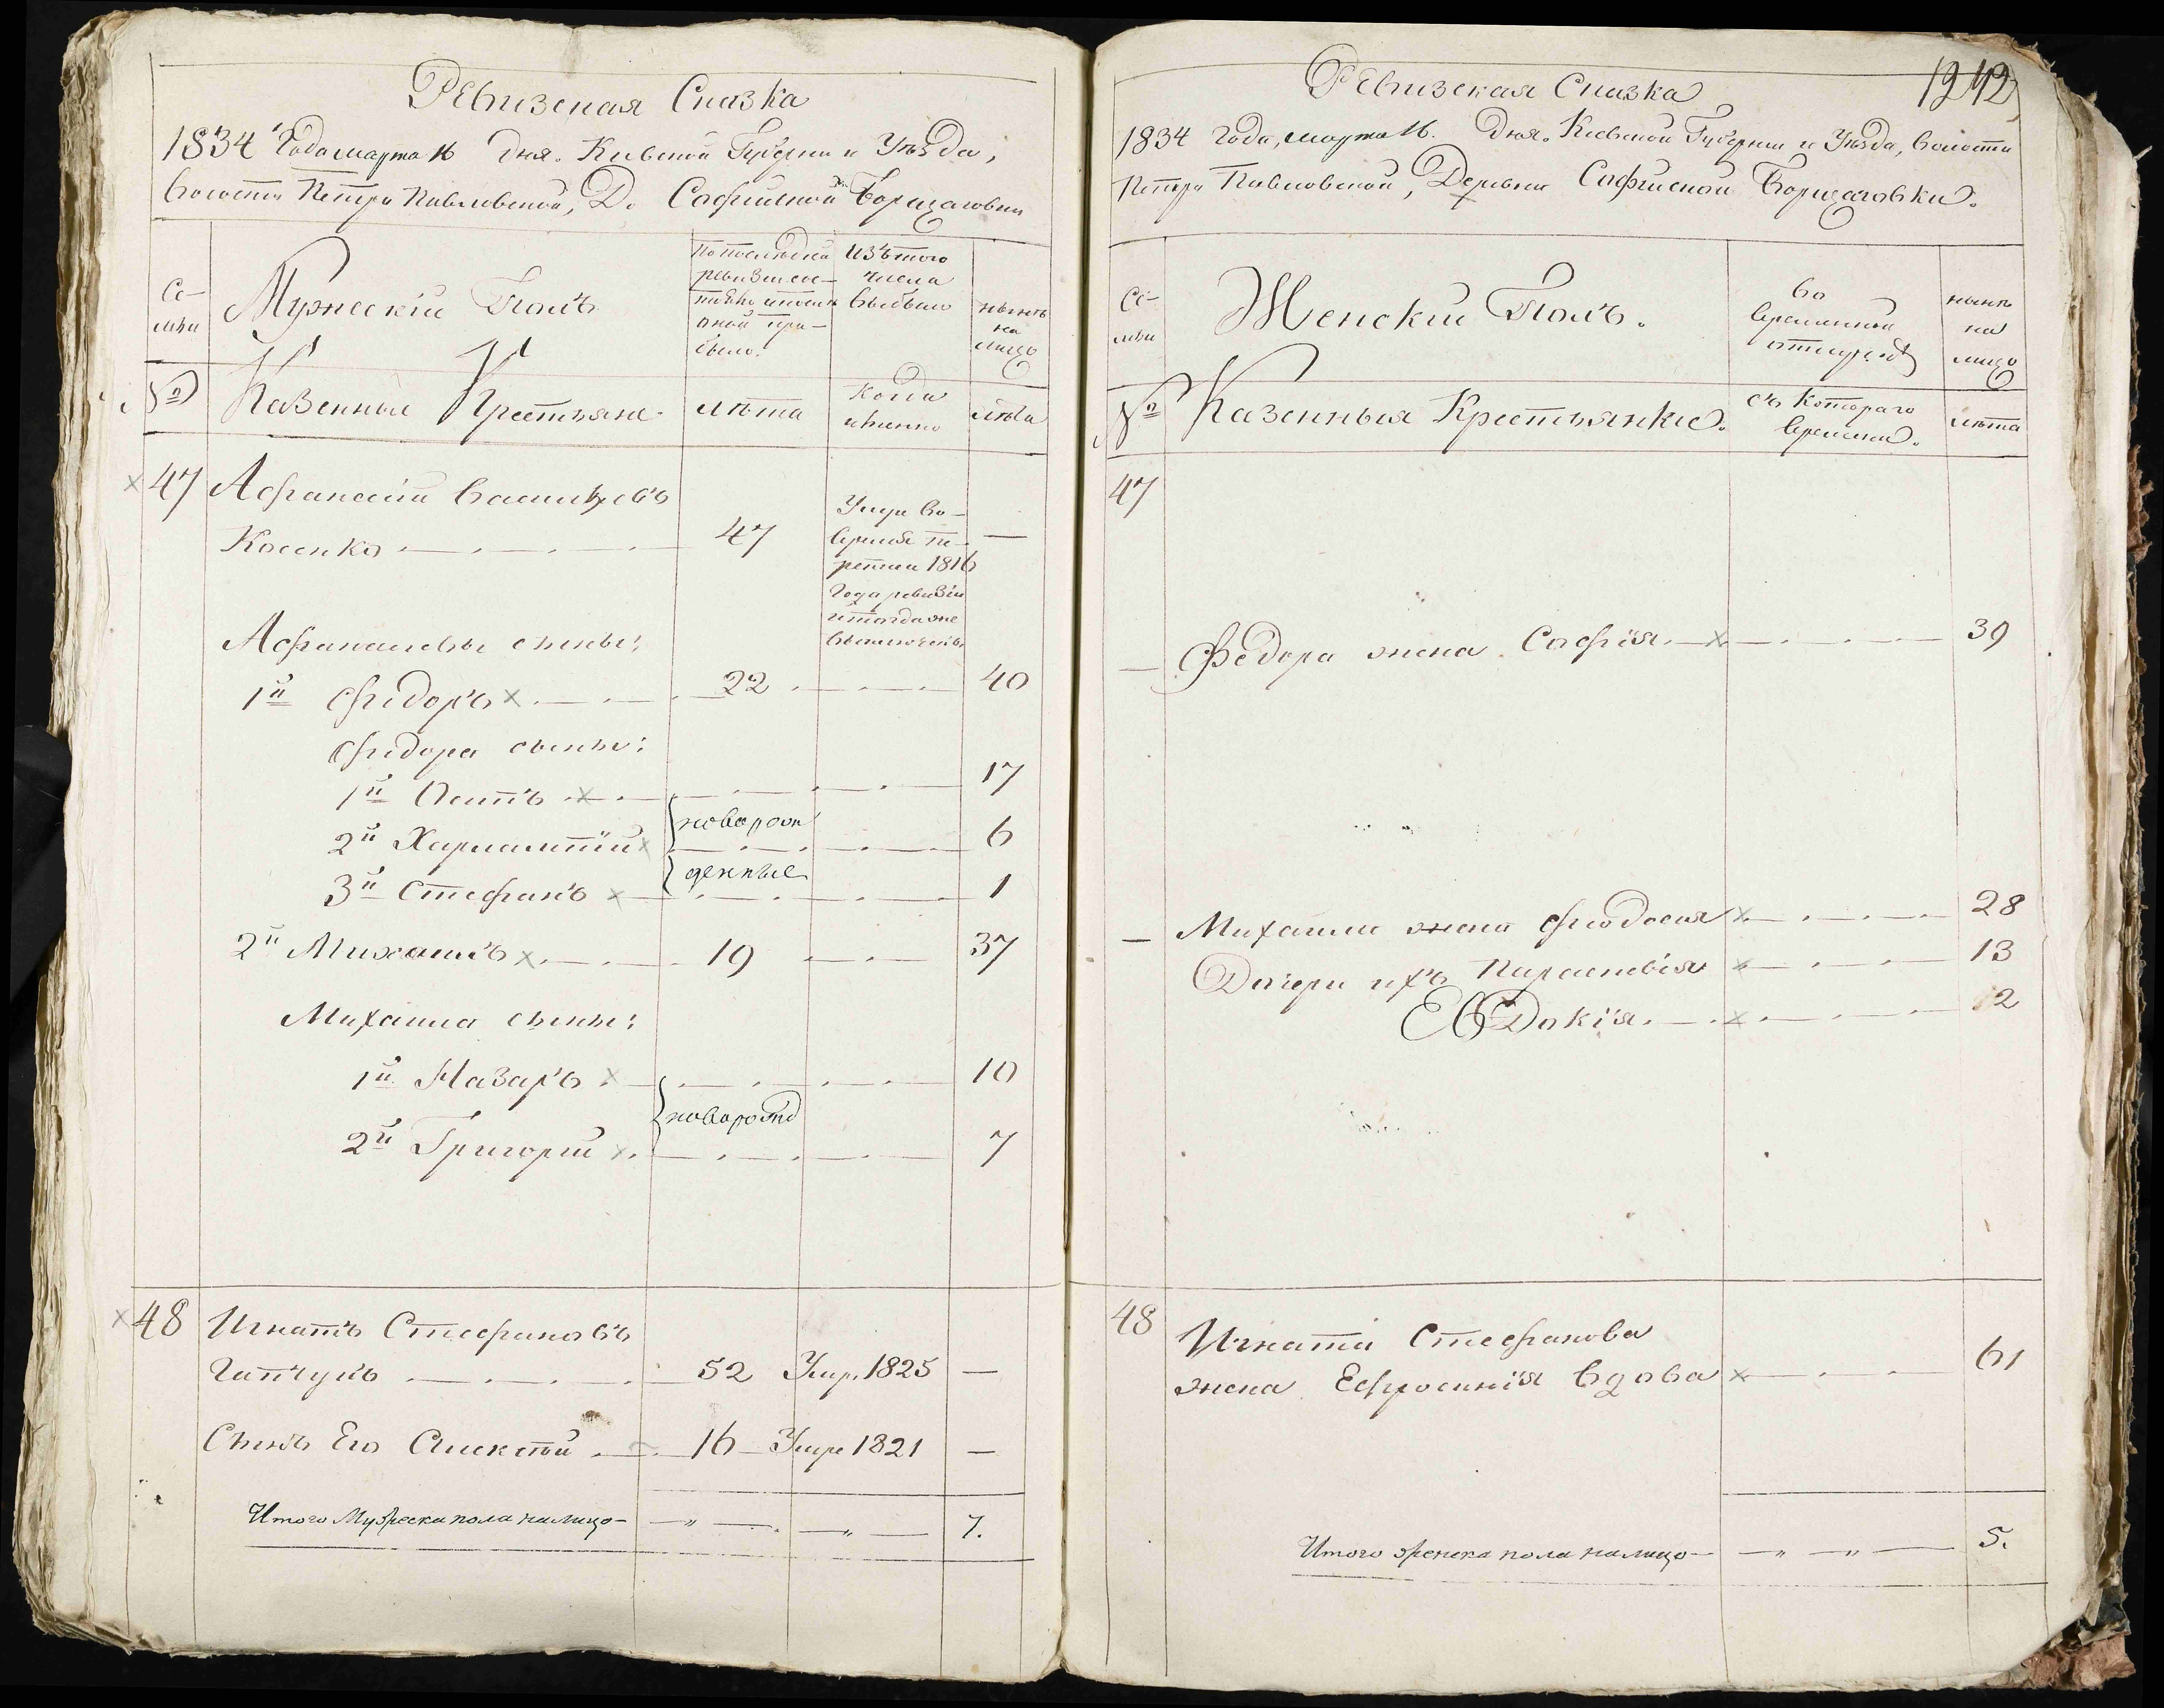 Ревизская Сказка
1834 Года марта 16 дня. Киевской Губернии и Уѣзда,
Волости Петро Павловской, Д. Софийской Борщаговки
Се-
мьи
Мужескій Полъ
По последней
ревизіи сос-
тояло и после
оной при-
было.
Изъ того
числа
выбыло
нынѣ
на
лицо
№
Казенные Крестьяне
лѣта
Когда
именно
лѣта
47 Афанасій Васильевъ
Косенко 47 —
Умре во-
время те-
ретии 1816
Года ревизіи
и тогда же
выключенъ
Афанасіевы сыны:
1й Федоръ 22 40
Федора сыны:
1й 17
2й Харлампій 6
3й Стефанъ 1
новорож
денные
2й Михаилъ 19 37
Михаила сыны:
1й Назаръ 10
новорожд
2й Григорій 7
48 Игнатъ Стефановъ
Гапчукъ 52 Умр. 1825 —
Сынъ Его Алексѣй 16 Умре 1821 —
Итого Мужеска пола налицо 7.
Ревизская Сказка 1242
1834 Года, марта 16. Дня. Киевской Губернии и Уѣзда, Волости
Петро Павловской, Деревни Софийской Борщаговки.
Се-
мьи
Женскій Полъ.
Во
временной
отлучкѣ
нынѣ
на
лицо
№
Казенныя Крестьянки.
Съ Котораго
времени.
лѣта
47
Федора жена Софія 39
Михаила жена Феодосія 28
Дочери ихъ Параскевія 13
Евдокія 12
48 Игната Стефанова
жена Ефросинія вдова 61
Итого женска пола налицо 5.